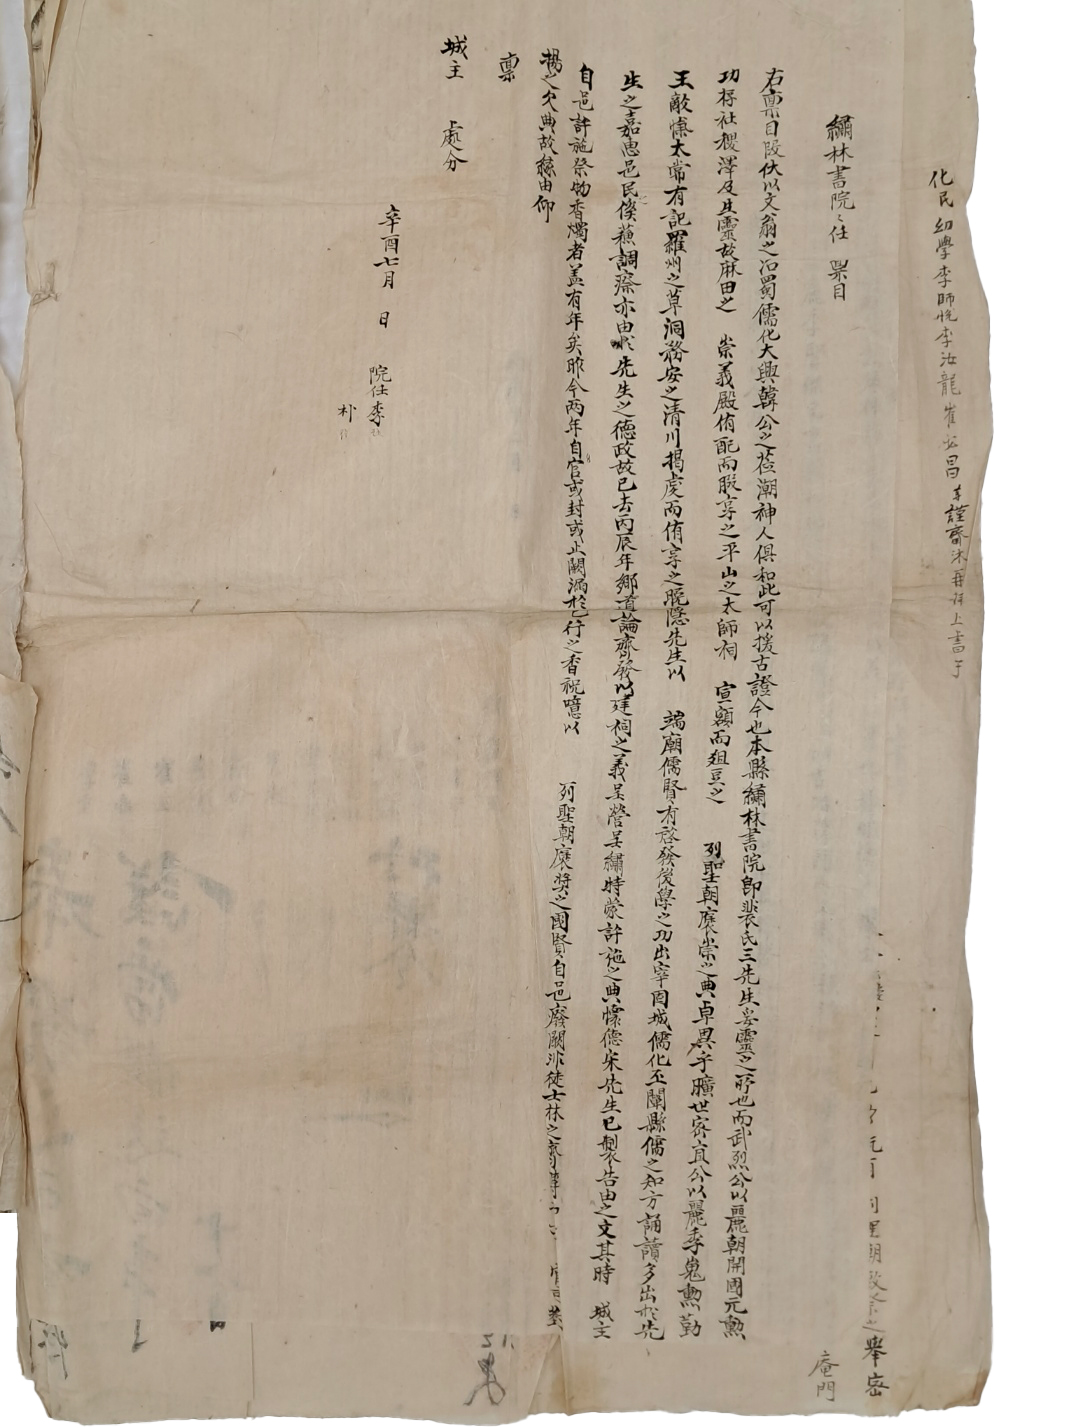 化民幼學李師悅李汝龍崔 昌等謹齋沐再拜上書于
舉密
庵門
繡林書院之任 稟目
右稟目段伏以文翁之治蜀儒化大興韓公之莅潮神人俱和此可以援古證今也本縣繡林書院卽裴氏三先生妥靈之所也而武烈公以麗朝開國元勳
功存社稷澤及生靈故麻田之 崇義殿侑配而腏享之平山之太師祠 宣額而俎豆之 列聖朝褒崇之典卓異乎曠世密直公以麗季嵬勳勤
王敵愾太常有記羅州之草洞務安之清川揭虔而侑享之晩隱先生以 端廟儒賢有啓發後學之功出宰固城儒化丕闡縣儒之知方誦讀多出於先
生之嘉惠邑民傒蘇調瘵亦由於先生之德政故已去丙辰年鄕道論齊發以建祠之義呈營呈繡時蒙許施之典懷德宋先生已製告由之文其時 城主
自邑許施祭物香燭者盖有年矣昨今兩年自官或封或止闕漏於已行之香祝噫以 列聖朝褒奬之國賢自邑廢闕非徒士林之
揚之欠典故緣由仰
稟
城主 處分
辛酉七月 日
院任李
朴